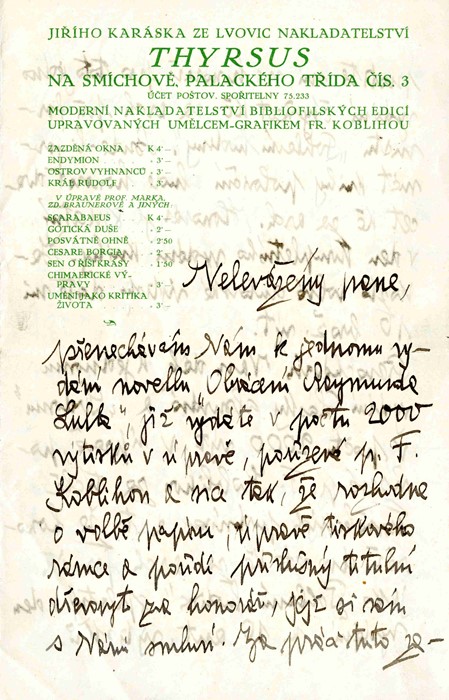 JIŘÍHO KARÁSKA ZE LVOVIC NAKLADATELSTVÍ
THYRSUS
NA SMÍCHOVĚ, PALACKÉHO TŘÍDA ČÍS. 3
ÚČET POŠTOV. SPOŘITELNY 75.233
MODERNÍ NAKLADATELSTVÍ BIBLIOFILSKÝCH EDICÍ
UPRAVOVANÝCH UMĚLCEM-GRAFIKEM FR. KOBLIHOU
ZAZDĚNÁ OKNA K 4·—
ENDYMION · 3·—
OSTROV VYHNANCŮ · 3·—
KRÁL RUDOLF · 3·—
V ÚPRAVĚ PROF. MARKA,
ZD. BRAUNEROVÉ A JINÝCH:
SCARABAEUS K 4·—
GOTICKÁ DUŠE · 2·—
POSVÁTNÉ OHNĚ · 2·50
CESARE BORGIA · 2·—
SEN O ŘÍŠI KRÁSY · 1·50
CHIMAERICKÉ VÝ-
PRAVY · 3·—
UMĚNÍ JAKO KRITIKA
ŽIVOTA · 3·—
Velevážený pane,
přenechávám Vám k jednomu vy-
dání novellu "Obrácení Raymunda
Lulla", již vydáte v počtu 2000
výtisků v úpravě, pořízené p. F.
Koblihou a sice tak, že rozhodne
o volbě papíru, úpravě tiskového
rámce a pořídí příslušný titulní
dřevoryt za honorář, jejž si sám
s Vámi smluví. Za práci tuto za-